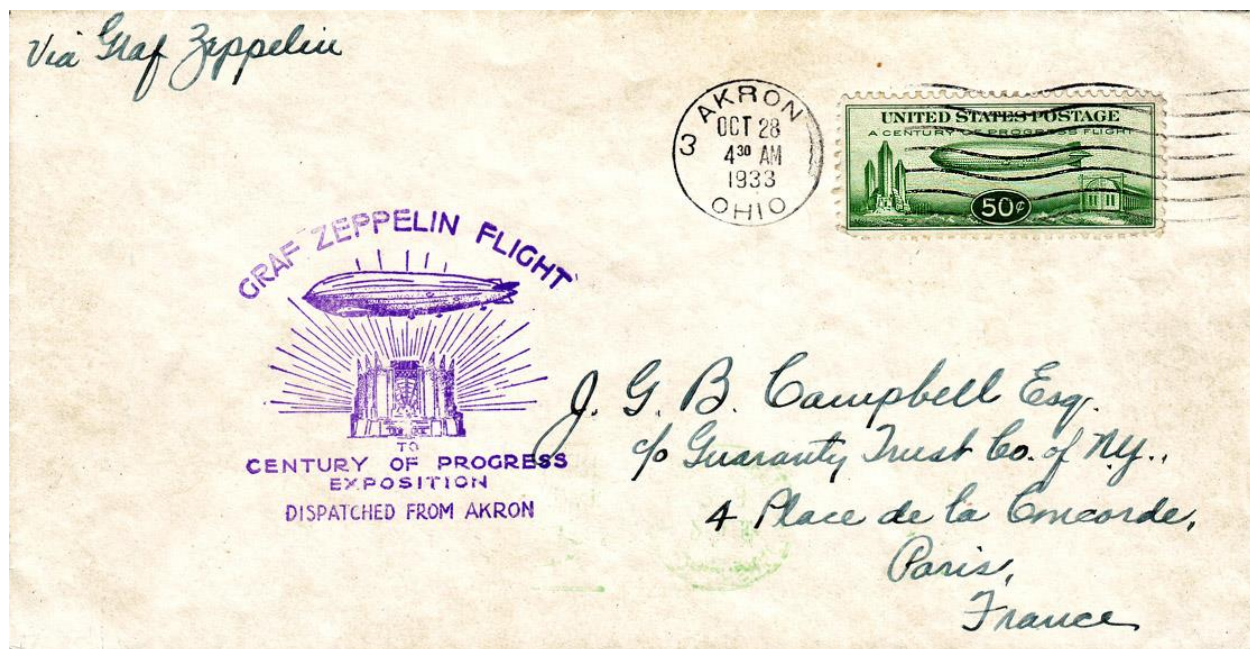 Via Graf Zeppelin
3 AKRON
OCT 28
4³⁰ AM
1933
OHIO
UNITED STATES POSTAGE
A CENTURY OF PROGRESS FLIGHT
50¢
GRAF ZEPPELIN FLIGHT
TO
CENTURY OF PROGRESS
EXPOSITION
DISPATCHED FROM AKRON
J. G. B. Campbell Esq.
c/o Guaranty Trust Co. of N.Y.,
4 Place de la Concorde,
Paris,
France